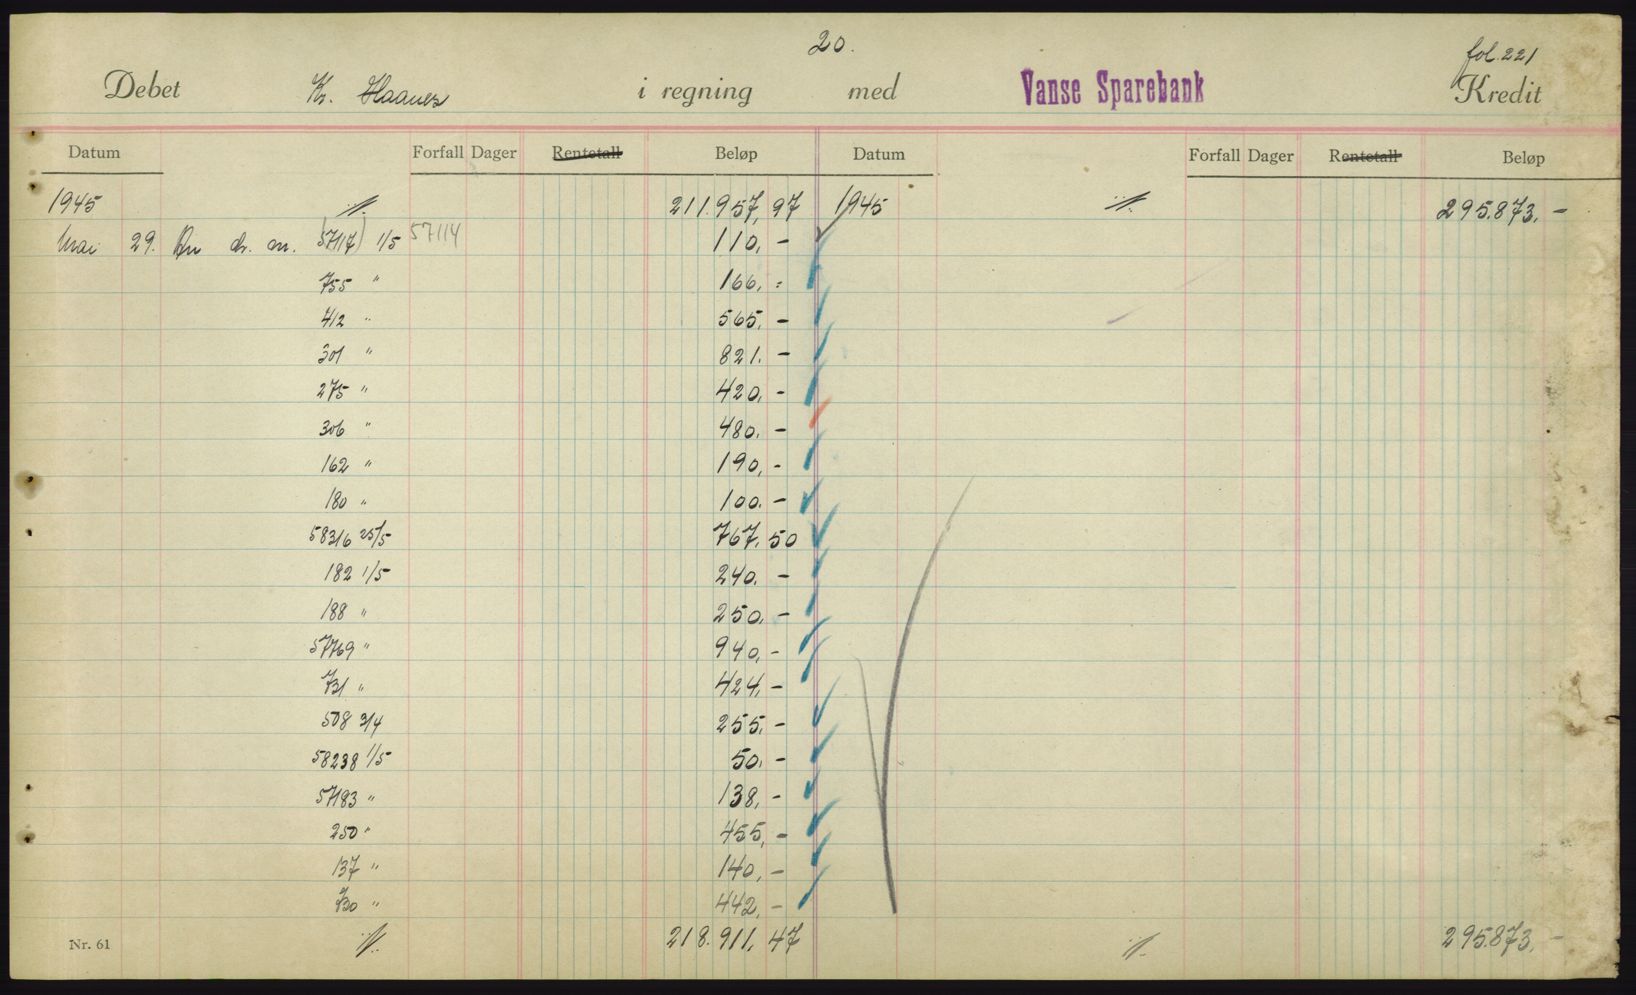 20.
fol. 221
Debet Kr. Haanes i regning med Vanse Sparebank Kredit
Datum Forfall Dager Rentetall Beløp Datum Forfall Dager Rentetall Beløp
1945 211.957,97 1945 295.873,-
Mai 29. dr. m. 57117 1/5 57114 110,-
755 " 166,-
412 " 565,-
301 " 821.-
275 " 420,-
306 " 480.-
162 " 190,-
180 " 100.-
58316 25/5 767,50
182 1/5 240.-
188 " 250,-
57769 " 940,-
731 " 424,-
508 3/4 255,-
58238 1/5 50.-
57183 " 138,-
250 " 455,-
137 " 140,-
730 " 442,-
Nr. 61 218.911,47 295.873,-